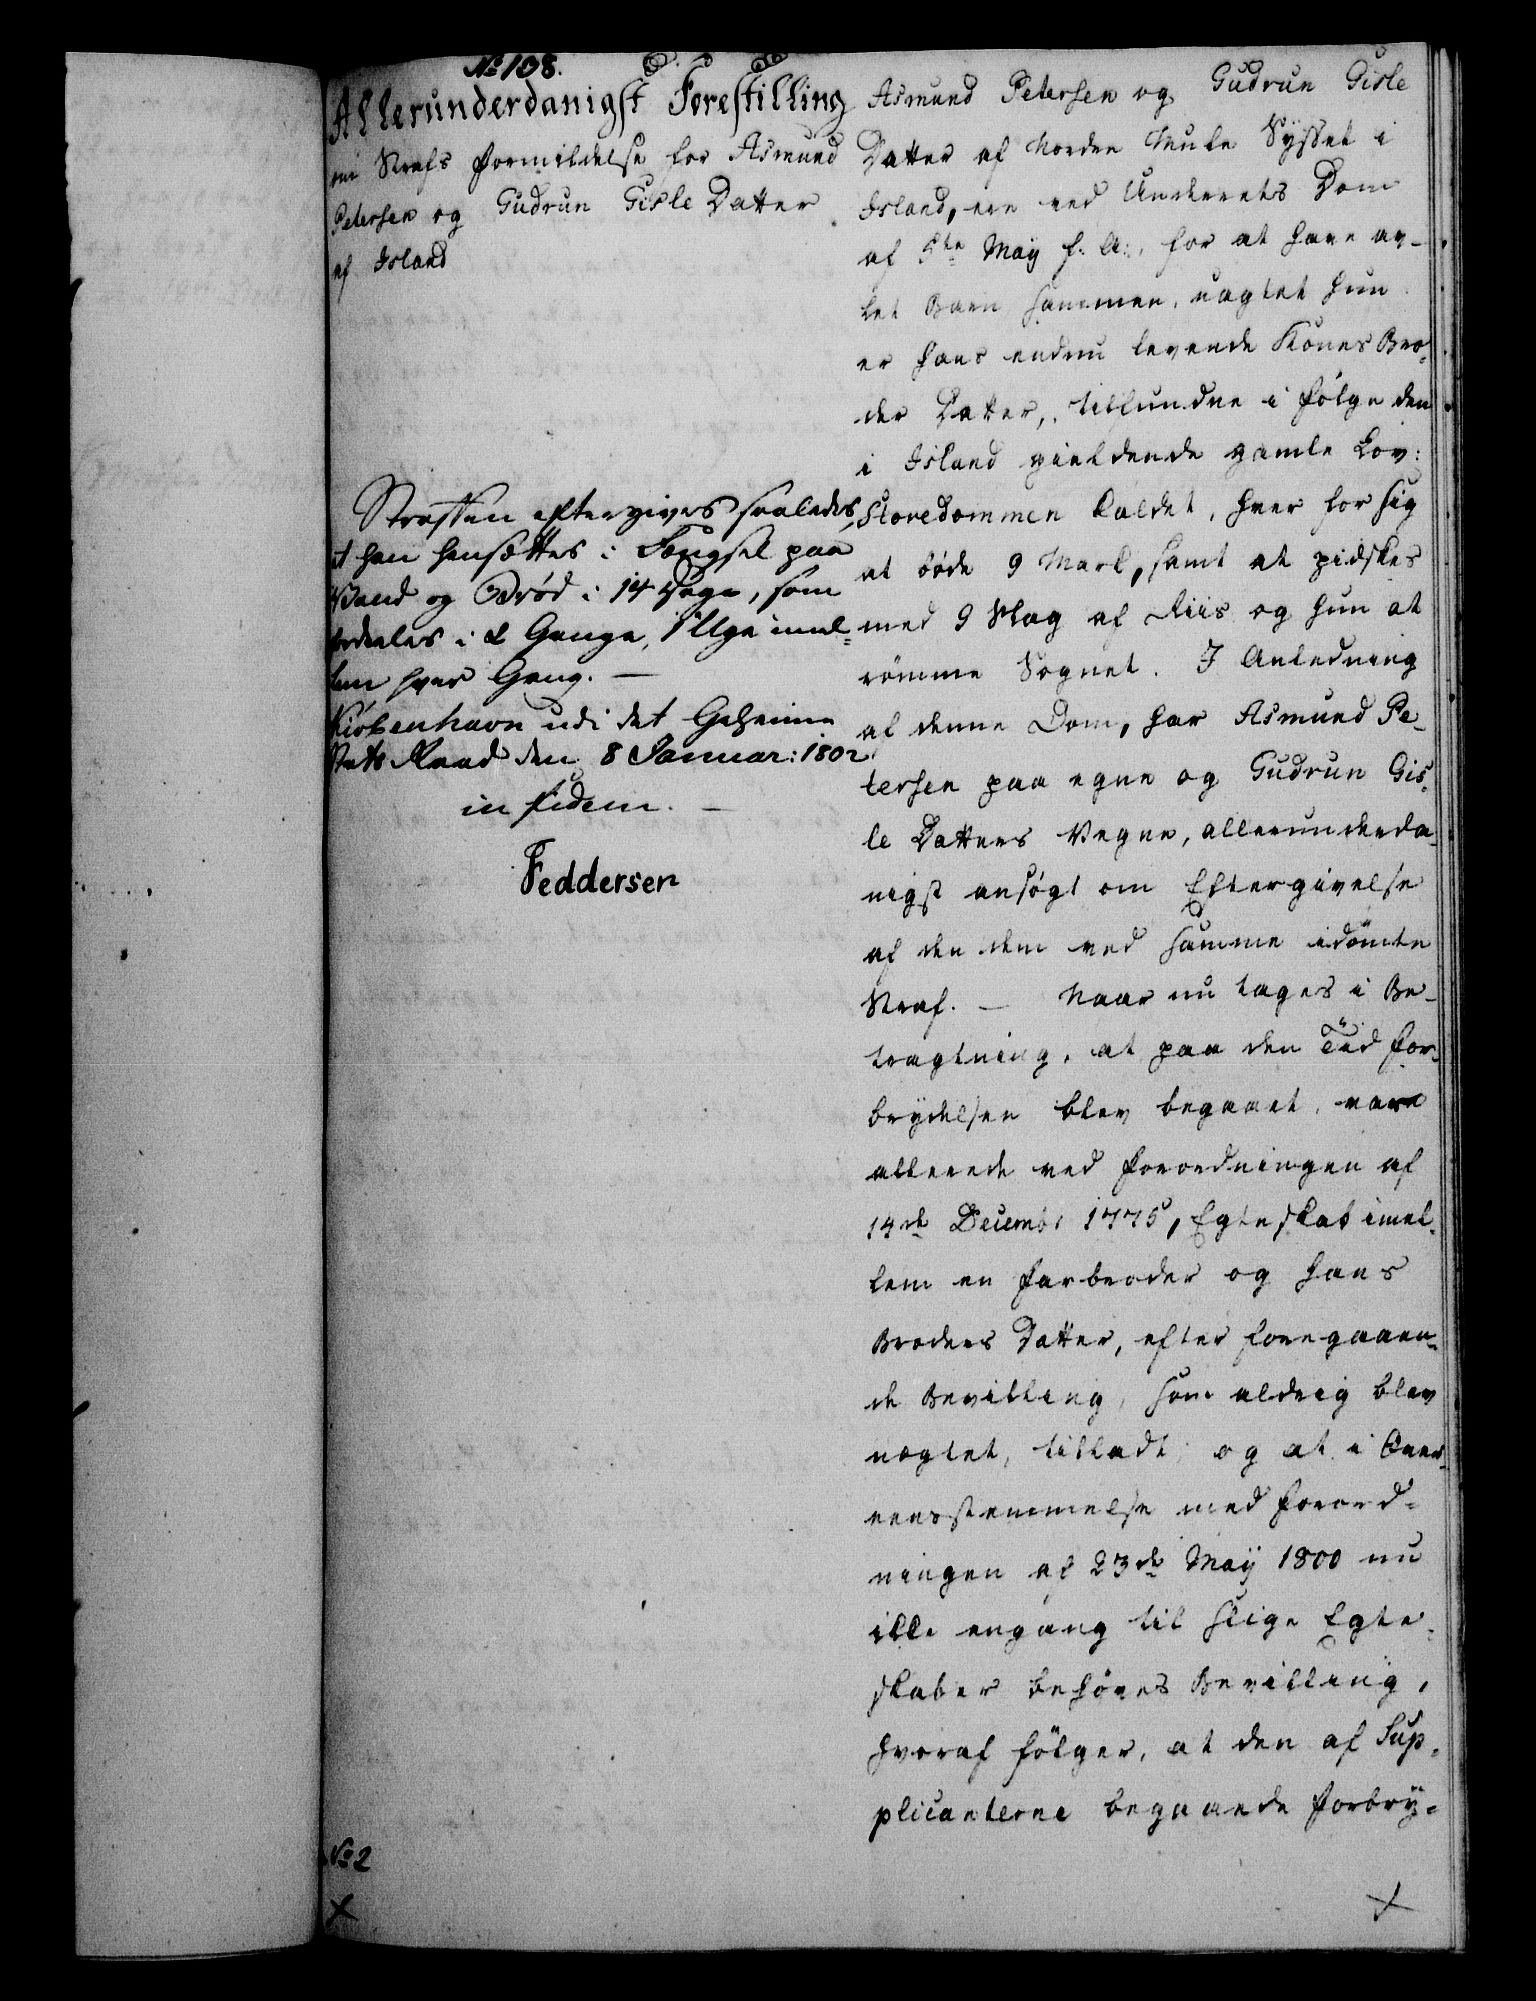 No 108.
Allerunderdanigst Forestilling
om Strafs Formildelse for Asmund
Petersen og Gudrun Gisle Datter
af Island
Straffen eftergives saaledes,
at han hensættes i Fængsel paa
Vand og Brød i 14 Dage, som
fordeeles i 2 Gange, 1 Uge imel=
lem hver Gang. —
Kiøbenhavn udi det Geheime
Stats Raad den 8 Januar: 1802
in fidem. —
Feddersen
No 2
Asmund Petersen og Gudrun Gisle
Datter af Norden Mule Sysset i
Island, ere ved Underrets Dom
af 5te May f: A:, for at have av-
let Barn sammen, uagtet hun
er hans endnu levende Kones Bro=
der Datter, tilfundne i Følge den
i Island gieldende gamle Lov:
Storedommen kaldet, hver for sig
at bøde 9 Mark, samt at pidskes
med 9 Slag af Riis og hun at
rømme Sognet. I Anledning
af denne Dom, har Asmund Pe-
tersen paa egne og Gudrun Gis=
le Datters Vegne, allerunderda=
nigst ansøgt om Eftergivelse
af den dem ved samme idømte
Straf. — Naar nu tages i Be-
tragtning, at paa den Tiid For=
brydelsen blev begaaet, vare
allerede ved Forordningen af
14de Decembr 1775, Egteskab imel=
lem en Farbroder og hans
Broders Datter, efter foregaaen=
de Bevilling, som aldrig blev
nægtet, tilladt, og at i Over=
eensstemmelse med Forord=
ningen af 23de May 1800 nu
ikke engang til slige Egte=
skaber behøves Bevilling,
hvoraf følger, at den af Sup=
plicanterne begaaede Forbry=